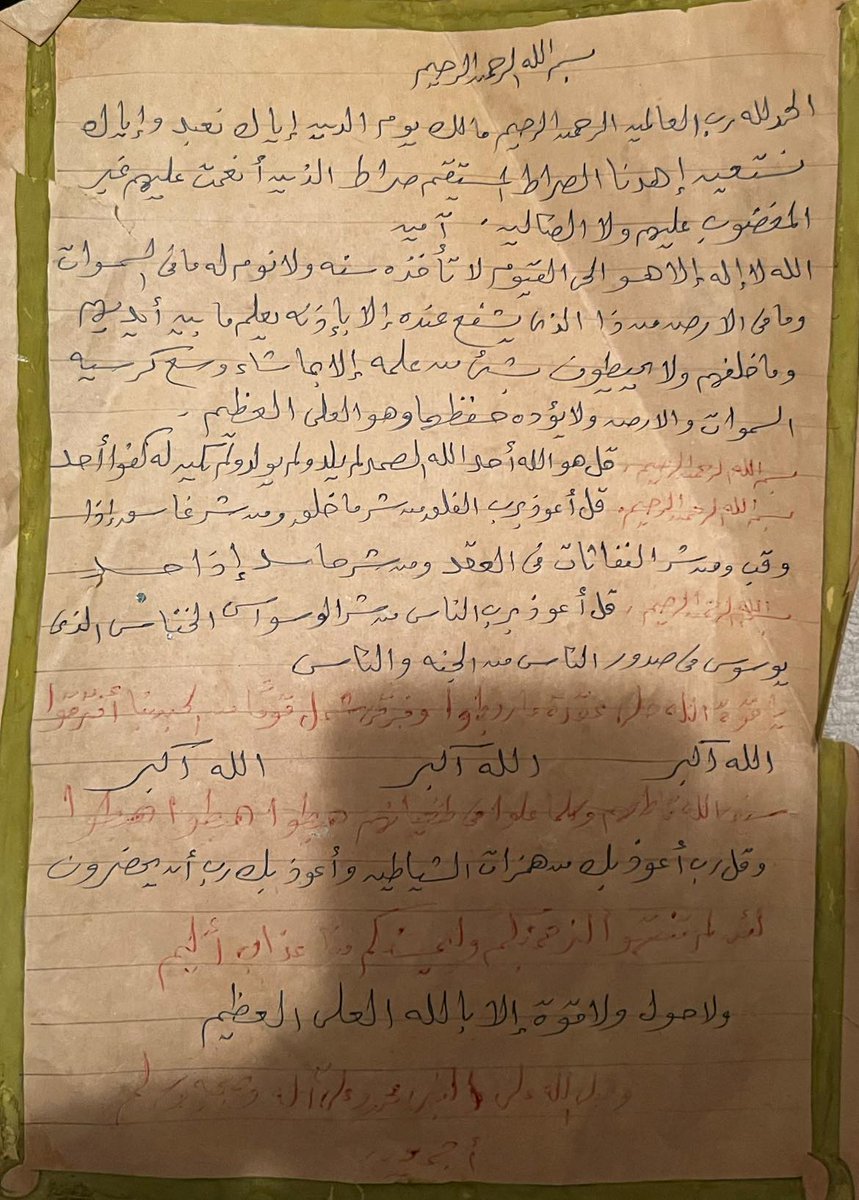 بسم الله الرحمن الرحيم
الحمد لله رب العالمين الرحمن الرحيم مالك يوم الدين إياك نعبد وإياك
نستعين إهدنا الصراط المستقيم صراط الذين أنعمت عليهم غير
المغضوب عليهم ولا الضالين . آمين
الله لا إله إلا هو الحى القيوم لا تأخذه سنه ولا نوم له مافى السموات
ومافى الارض من ذا الذى يشفع عنده إلا بإذنه يعلم ما بين أيديهم
وماخلفهم ولا يحيطون بشئ من علمه إلا بما شاء وسع كرسيه
السموات والارض ولا يؤده حفظهما وهو العلى العظيم .
بسم الله الرحمن الرحيم . قل هو الله أحد الله الصمد لم يلد ولم يولد ولم يكن له كفوا أحد
بسم الله الرحمن الرحيم . قل أعوذ برب الفلق من شر ما خلق ومن شر غاسق إذا
وقب ومن شر النفاثات فى العقد ومن شر حاسد إذا حسد
بسم الله الرحمن الرحيم . قل أعوذ برب الناس من شر الوسواس الخناس الذى
يوسوس فى صدور الناس من الجنه والناس
الله
الله أكبر الله أكبر الله أكبر
الله وكلما علوا فى طغيانهم هبطوا هبطوا هبطوا
وقل رب أعوذ بك من همزات الشياطين وأعوذ بك رب أن يحضرون
لئن لم تنتهوا لنرجمنكم وليمسنكم منا عذاب أليم
ولا حول ولا قوة إلا بالله العلى العظيم
وصل الله على النبى محمد وعلى آله وصحبه وسلم